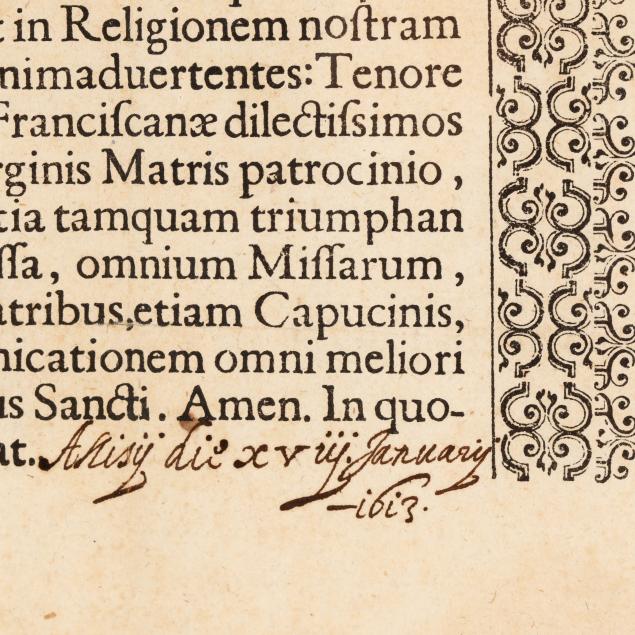 t in Religionem noſtram
nimaduertentes: Tenore
Franciſcanæ dilectiſsimos
rginis Matris patrocinio,
tia tamquam triumphan
ſſa, omnium Miſſarum,
atribus etiam Capucinis,
nicationem omni meliori
us Sancti. Amen. In quo-
at. Aſsisij die xviij. Januarij
1613.